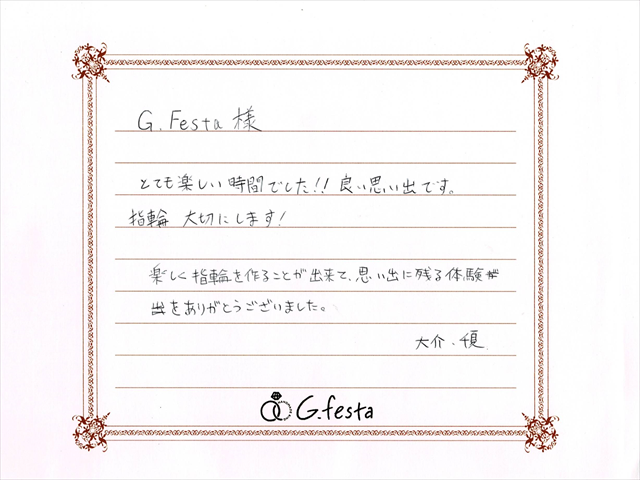 G.Festa 様
とても楽しい時間でした!! 良い思い出です。
指輪 大切にします!
楽しく指輪を作ることが出来て、思い出に残る体験
をありがとうございました。
大介・
G.festa